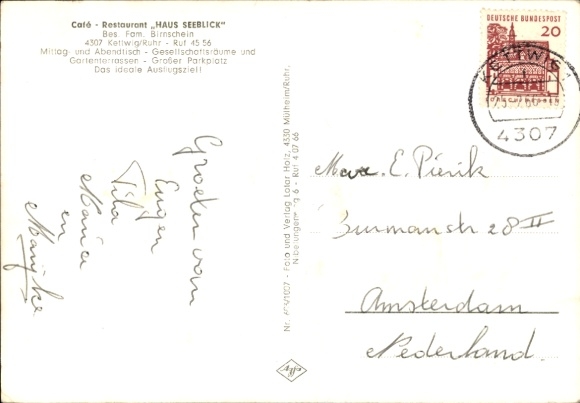 Café - Restaurant „HAUS SEEBLICK"
Bes. Fam. Birnschein
4307 Kettwig/Ruhr - Ruf 45 56
Mittag- und Abendtisch - Gesellschaftsräume und
Gartenterrassen - Großer Parkplatz
Das ideale Ausflugsziel!
Groeten van
Eugen
Tila
Maria
en
Marijke
Foto und Verlag Lotar Holz, 4330 Mülheim/Ruhr,
Nibelungenweg 6 - Ruf 4 07 66
DEUTSCHE BUNDESPOST
20
KETTWIG
4307
E. Pierik
Burmanstr 28 II
Amsterdam
Nederland.